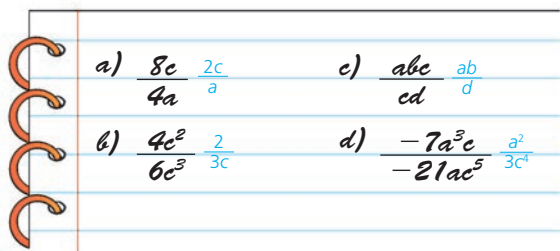 a) 8c/4a 2c/a
b) 4c²/6c³ 2/3c
c) abc/cd ab/d
d) −7a³c/−21ac⁵ a²/3c⁴